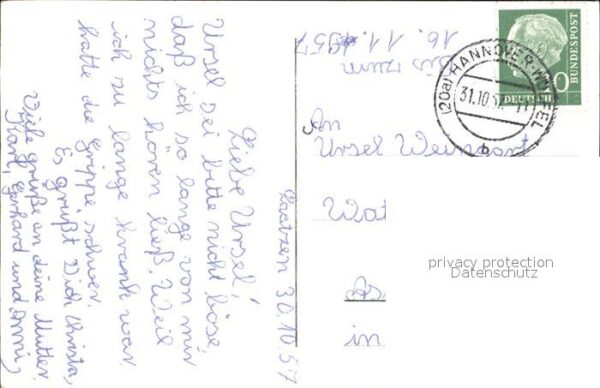 Laatzen 30.10.57
Liebe Ursel,
Ursel sei bitte nicht böse,
daß ich so lange von mir
nichts hören ließ. Weil
ich zu lange krank war.
hatte die Grippe schwer.
Es grüßt Dich Christa,
Viele grüße an deine Mutter
Karl, Gerhard und Omni,
Bis zum
16. 11. 1957
An
Ursel Weingart
Wat
in
DEUTSCHE
BUNDESPOST
(20a) HANNOVER-WÜLFEL
31.10.57
b
privacy protection
Datenschutz